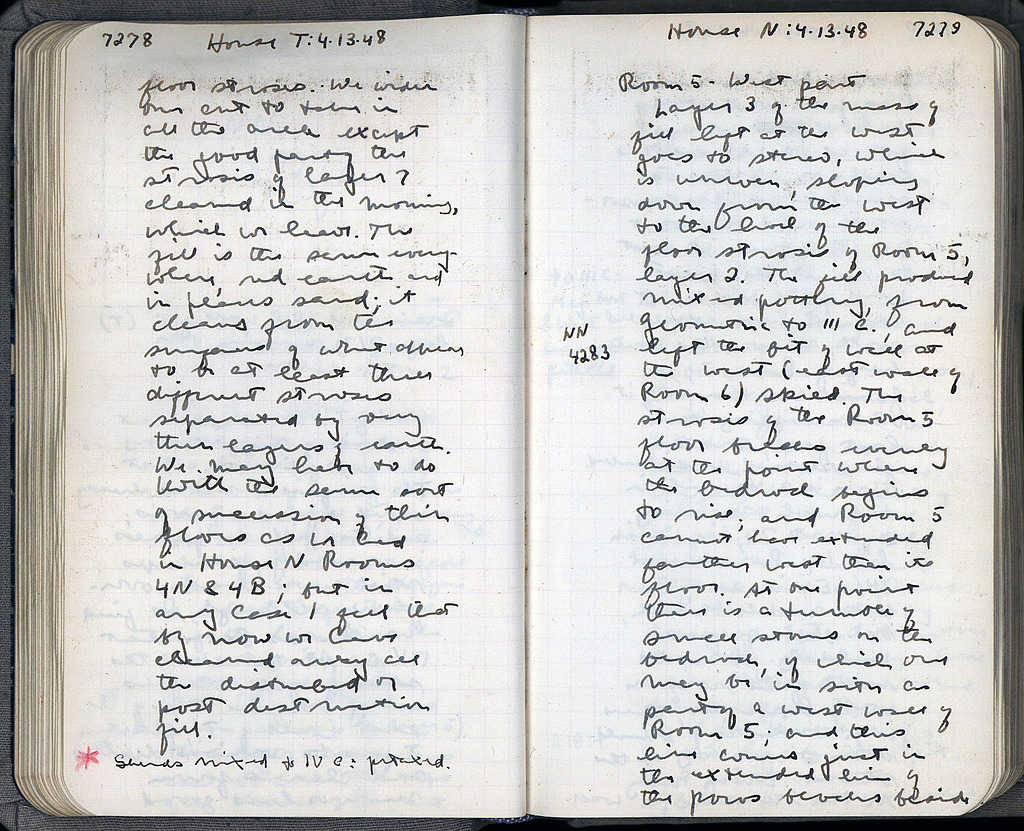 7278 House T: 4.13.48
floor strosis. We widen
our cut to take in
all the area except
the good part of the
strosis of layer 7
cleaned in the morning,
which we leave. The
fill is the same every-
where, red earth and
in places sand; it
cleans from the
surfaces of what appears
to be at least three
different stroses
separated by very
thin layers of earth.
We may have to do
with the same sort
of succession of thin
floors as we had
in House N Rooms
4N & 4B; but in
any case I feel that
by now we have
cleaned away all
the disturbed or
post destruction
fill.
* Sherds mixed to IV c: pitched.
House N: 4.13.48 7279
Room 5 - West part
Layer 3 of the mass of
fill left at the west
goes to stereo, which
is uneven, sloping
down from the west
to the level of the
floor strosis of Room 5,
layer 2. The fill produced
mixed pottery, from
geometric to III c. and
NN
4283
left the bit of wall at
the west (east wall of
Room 6) skied. The
strosis of the Room 5
floor breaks evenly
at the point where
the bedrock begins
to rise, and Room 5
cannot have extended
farther west than its
floor. At one point
there is a tumble of
small stones on the
bedrock, of which one
may be in situ as
part of a west wall of
Room 5; and this
line comes just in
the extended line of
the poros blocks beside